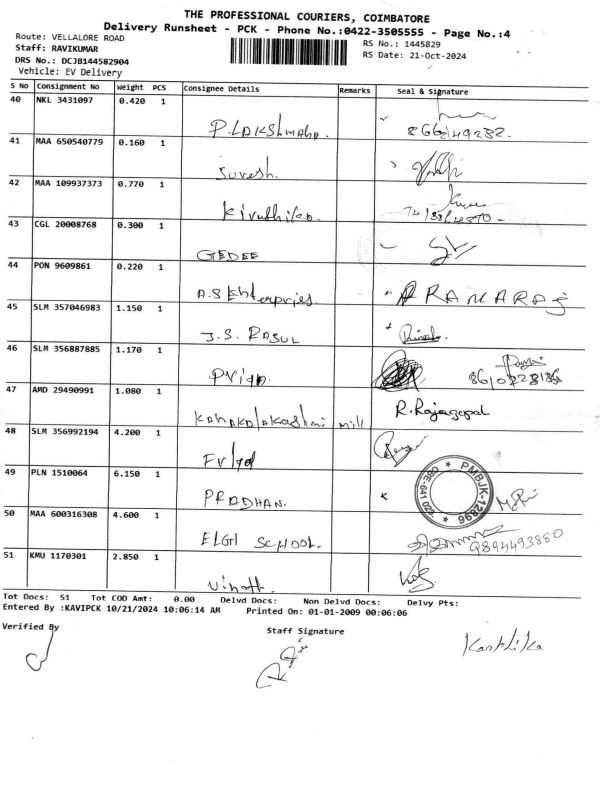 THE PROFESSIONAL COURIERS, COIMBATORE
Delivery Runsheet - PCK - Phone No.:0422-3505555 - Page No.:4
Route: VELLALORE ROAD
RS No.: 1445829
Staff: RAVIKUMAR
RS Date: 21-Oct-2024
DRS No.: DCJB144582904
Vehicle: EV Delivery
S No Consignment No Weight PCS Consignee Details Remarks Seal & Signature
40 NKL 3431097 0.420 1
P. LAKSHMANA.
41 MAA 650540779 0.160 1
Suresh.
42 MAA 109937373 0.770 1
Kiruthika.
43 CGL 20008768 0.300 1
GEDEE
44 PON 9609861 0.220 1
A.S Enterpries. RAMARAJ
45 SLM 357046983 1.150 1
J.S. RASUL
46 SLM 356887885 1.170 1
Priya. 8610228186
47 AMD 29490991 1.080 1
Kanakalakashmi mill R. Rajagopal
48 SLM 356992194 4.200 1
49 PLN 1510064 6.150 1
PRADHAN. PMBJK-12896 CBE-641 020
50 MAA 600316308 4.600 1
ELGI SCHOOL. 9894493880
51 KMU 1170301 2.850 1
Vinoth.
Tot Docs: 51 Tot COD Amt: 0.00 Delvd Docs: Non Delvd Docs: Delvy Pts:
Entered By :KAVIPCK 10/21/2024 10:06:14 AM Printed On: 01-01-2009 00:06:06
Verified By
Staff Signature
Karthika